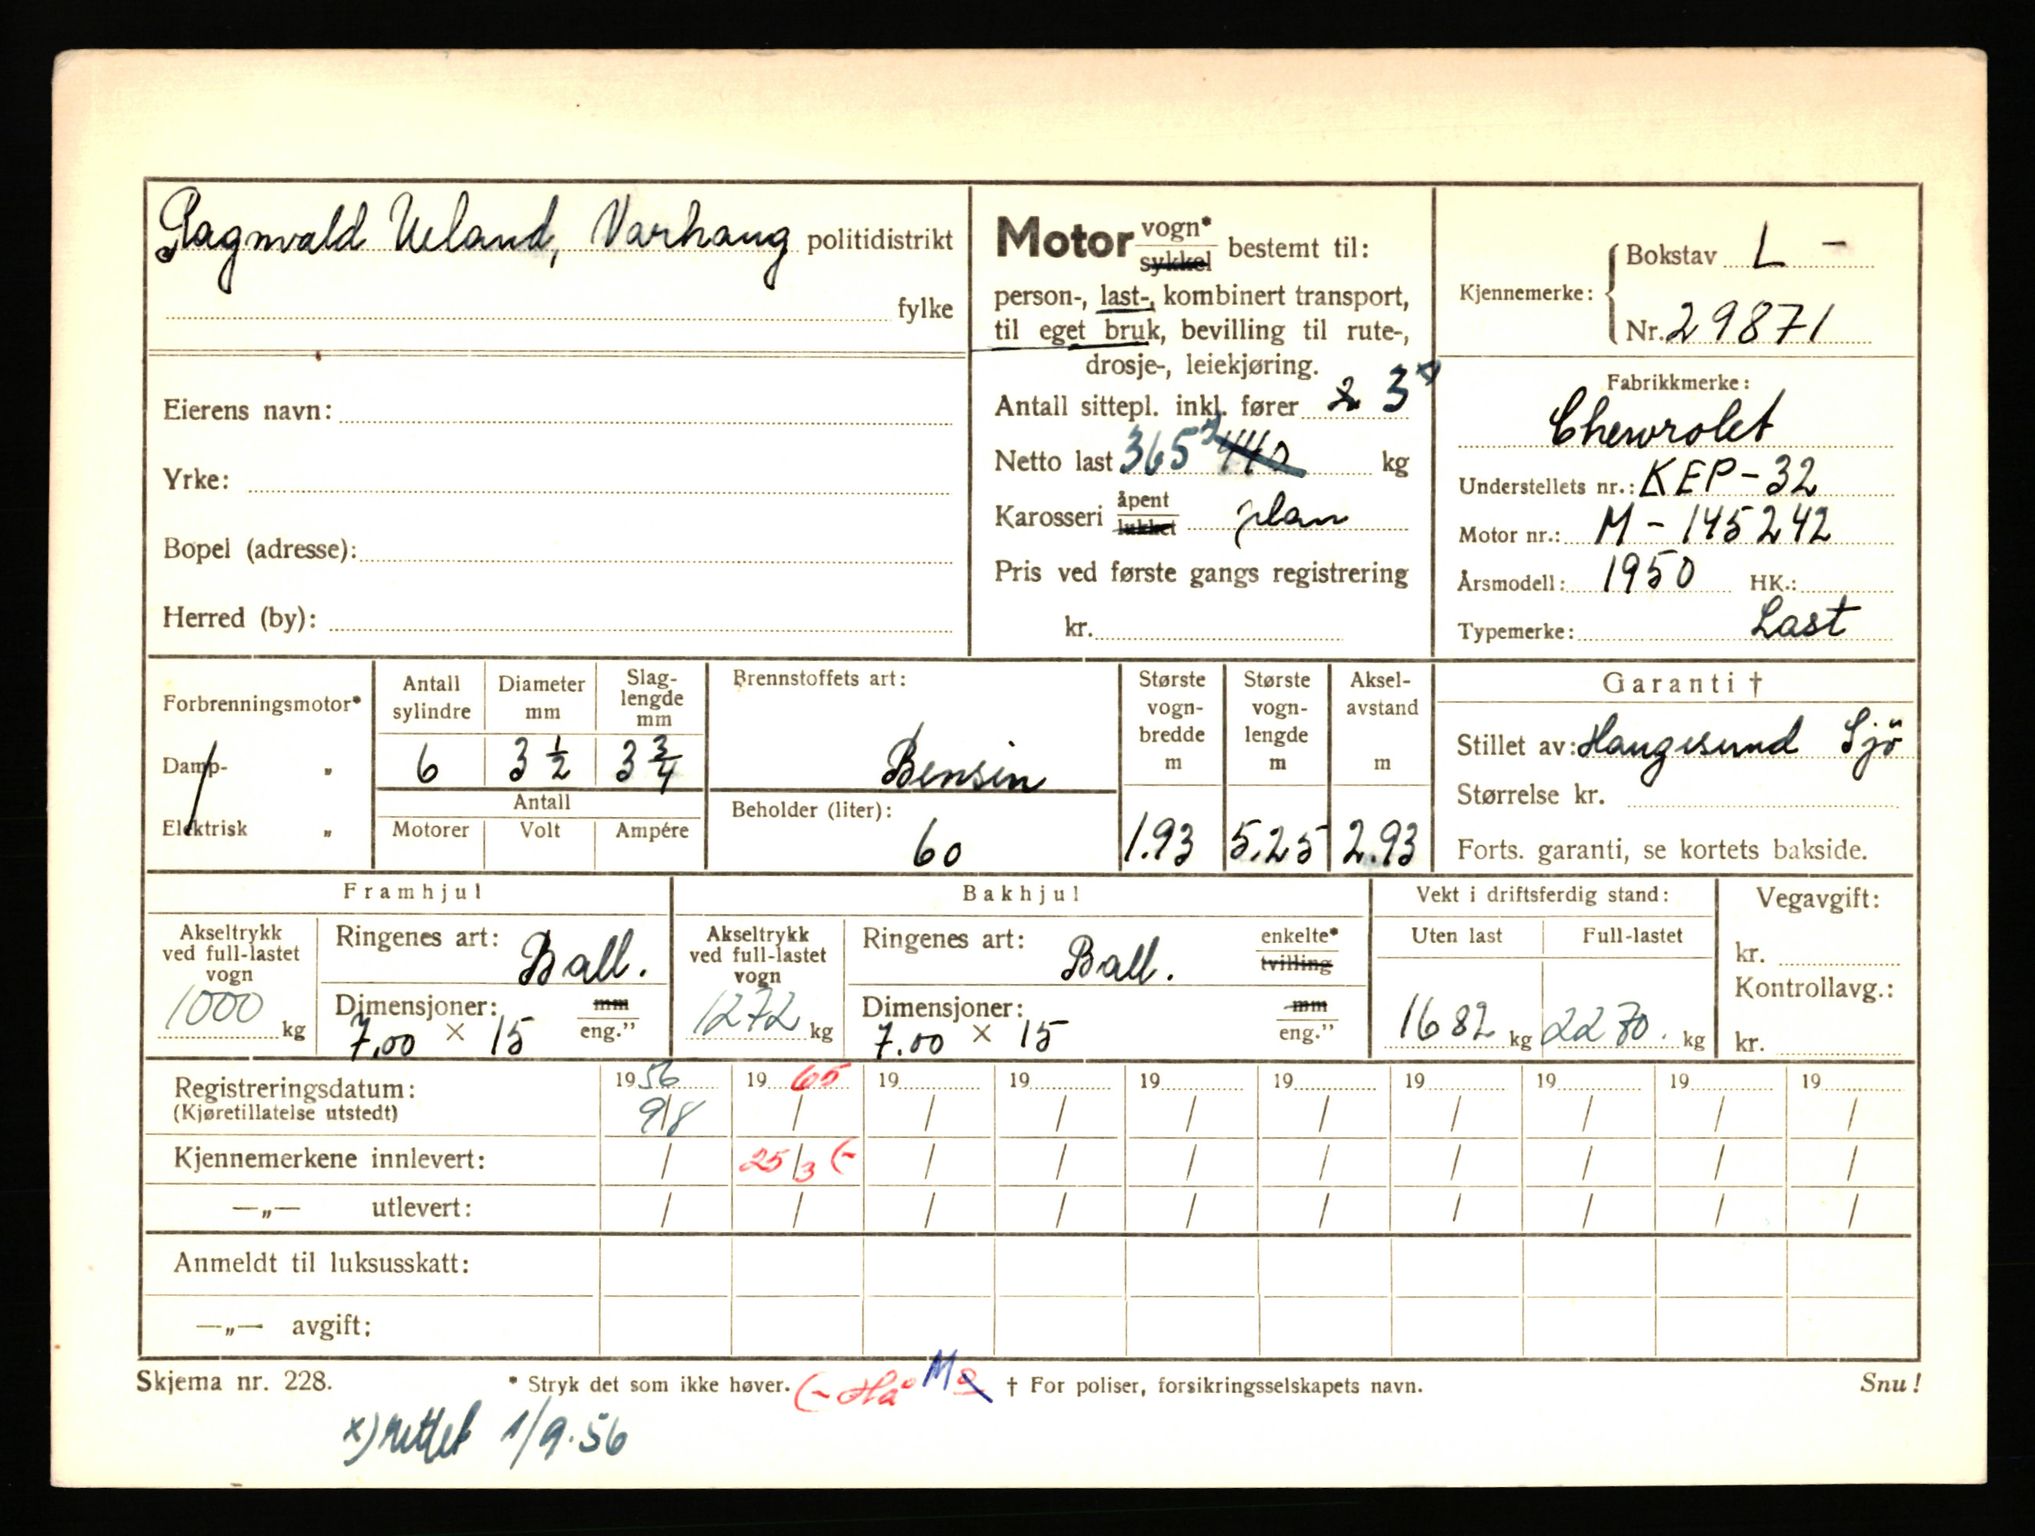 Ragnvald Ueland, Varhaug politidistrikt
fylke
Eierens navn:
Yrke:
Bopel (adresse):
Herred (by):
Motor vogn* sykkel bestemt til:
person-, last-, kombinert transport,
til eget bruk, bevilling til rute-,
drosje-, leiekjøring.
Antall sittepl. inkl. fører 2 3 x)
Netto last 365 x) 440 kg
Karosseri åpent lukket plan
Pris ved første gangs registrering
kr.
Kjennemerke: Bokstav L -
Nr. 29871
Fabrikkmerke:
Chevrolet
Understellets nr.: KEP-32
Motor nr.: M - 145242
Årsmodell: 1950 HK.:
Typemerke: Last
Forbrenningsmotor*
Damp- „
Elektrisk „
Antall sylindre
6
Diameter mm
3 1/2
Slag-lengde mm
3 3/4
Antall
Motorer Volt Ampére
Brennstoffets art:
Bensin
Beholder (liter):
60
Største vogn-bredde m
1.93
Største vogn-lengde m
5.25
Aksel-avstand m
2.93
Garanti †
Stillet av: Haugesund Sjö
Størrelse kr.
Forts. garanti, se kortets bakside.
Framhjul
Akseltrykk ved full-lastet vogn
1000 kg
Ringenes art: Ball.
Dimensjoner: mm
7.00 × 15 eng.”
Bakhjul
Akseltrykk ved full-lastet vogn
1272 kg
Ringenes art: Ball. enkelte* tvilling
Dimensjoner: mm
7.00 × 15 eng.”
Vekt i driftsferdig stand:
Uten last Full-lastet
1682 kg 2270. kg
Vegavgift:
kr.
Kontrollavg.:
kr.
Registreringsdatum: 1956 1965 19 19 19 19 19 19 19 19
(Kjøretillatelse utstedt) 9/8 / / / / / / / / /
Kjennemerkene innlevert: / 25/3 (- / / / / / / / /
—„— utlevert: / / / / / / / / / /
Anmeldt til luksusskatt:
—„— avgift:
Skjema nr. 228. * Stryk det som ikke høver. (- Hå M † For poliser, forsikringsselskapets navn. Snu!
x) rettet 1/9.56